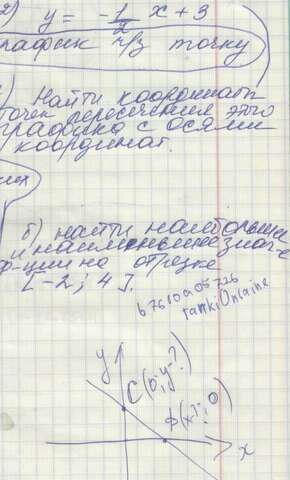 2) y = -1/2 x + 3
график ч/з точку
Найти координаты
точек пересечения этого
графика с осями
координат.
их
б) найти наибольше
и наименьшее знач-е
ф-ции на отрезке
[-2; 4].
y
C(0; y-?)
(x-?; 0)
x